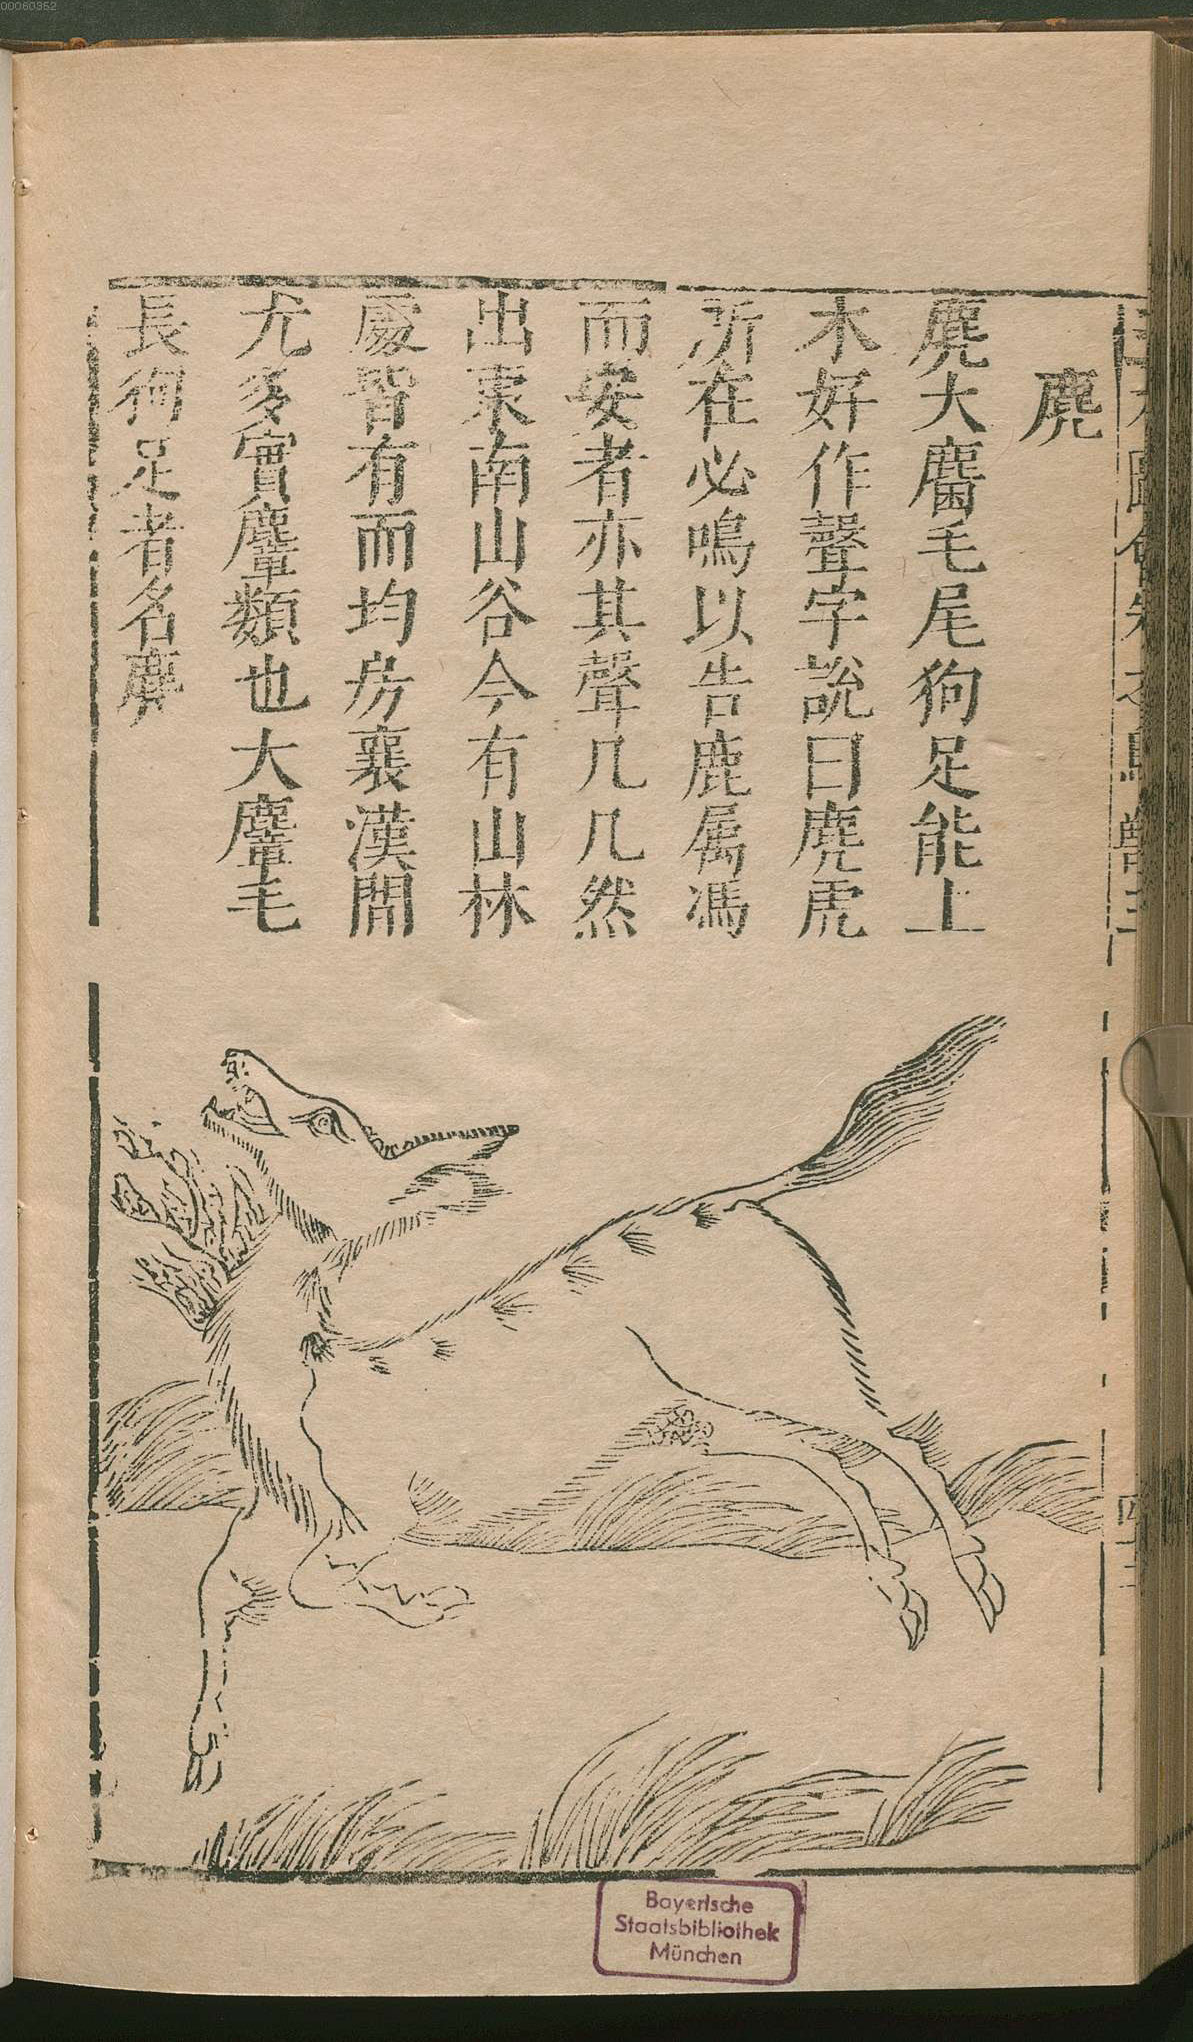 00060352
麂
麂大麕毛尾狗足能上
木好作聲字說曰麂虎
所在必鳴以告鹿屬馮
而安者亦其聲几几然
出東南山谷今有山林
處皆有而均房襄漢間
尤多實麞類也大麞毛
長狗足者名
Bayerische
Staatsbibliothek
München